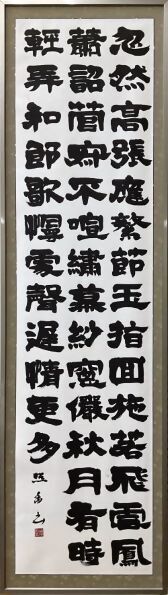 忽然高張應繁節玉指回旋若飛雪鳳
簫韶管寂不喧繡幕紗窗儼秋月有時
輕弄和郎歌慢處聲遲情更多